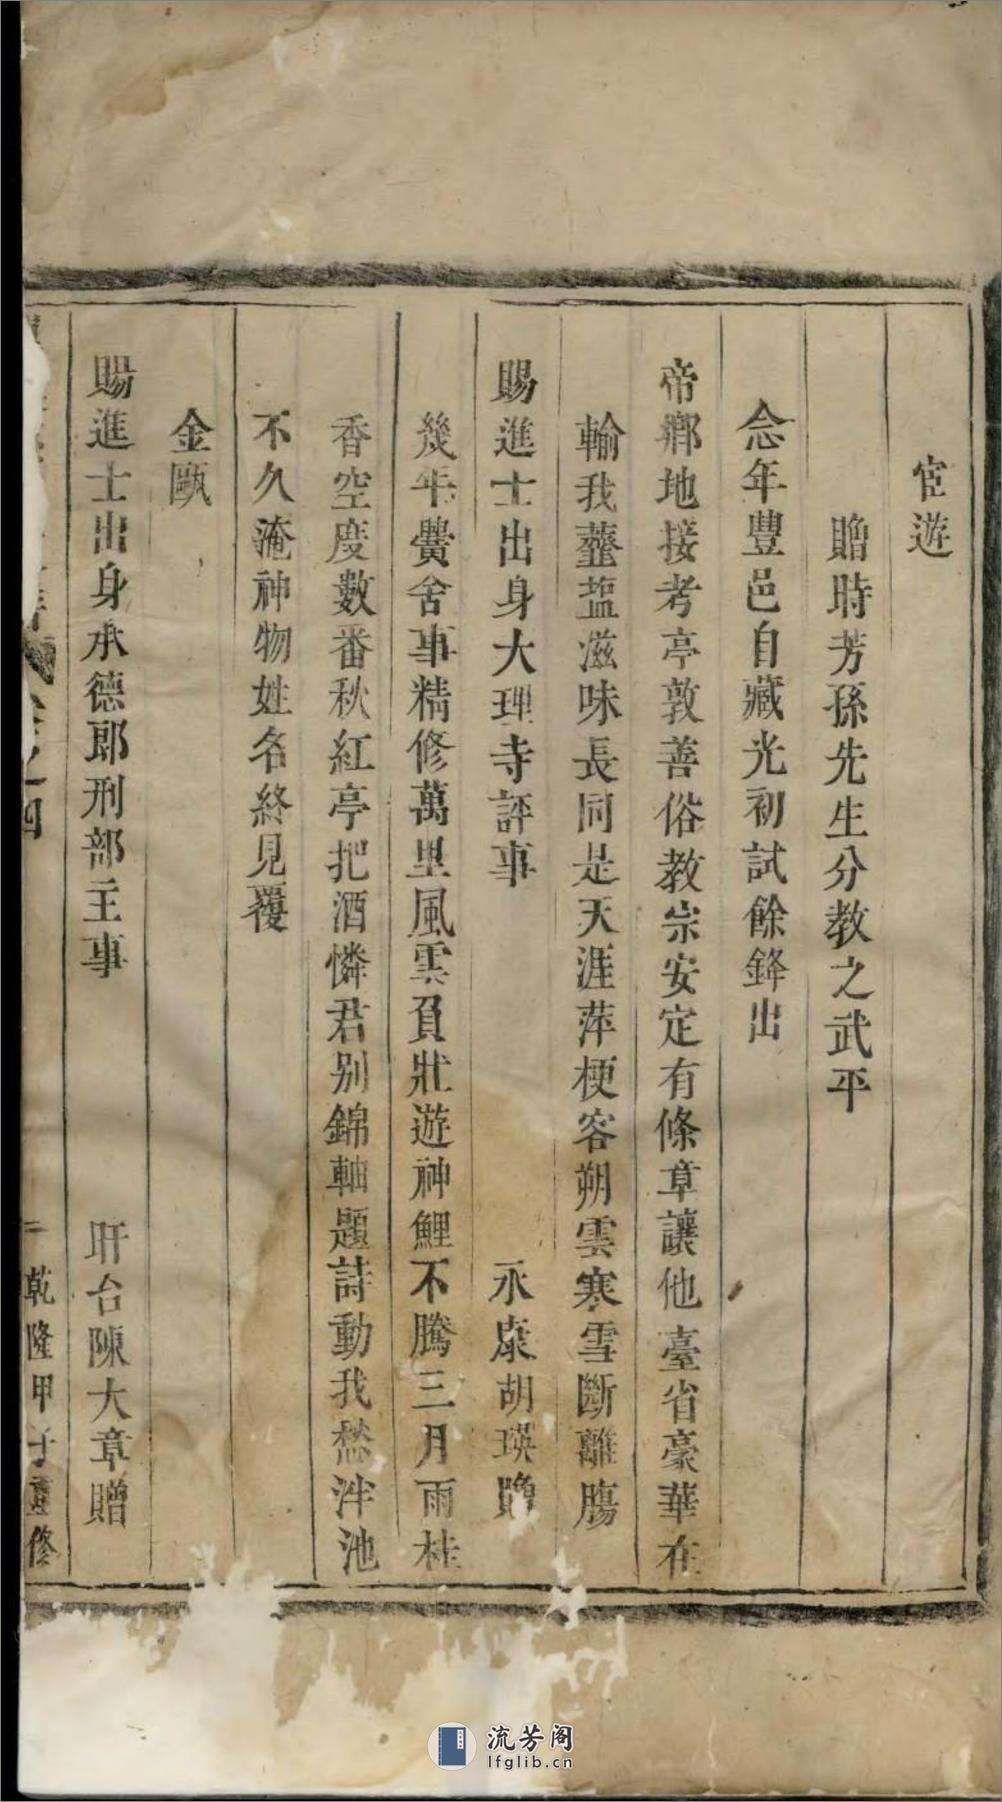 宦遊
贈時芳孫先生分教之武平
念年豐邑自藏光初試餘鋒出
帝鄉地接考亭敦善俗教宗安定有條章讓他臺省豪華在
輸我虀盐滋味長同是天涯萍梗客朔雲寒雪斷離膓
賜進士出身大理寺評事 永康胡瑛贈
幾年黌舍事精修萬里風雲負壯遊神鯉不騰三月雨桂
香空度數番秋紅亭把酒憐君别錦軸題詩動我愁泮池
不久淹神物姓名終見覆
金甌
賜進士出身承德郎刑部主事 盱台陳大章贈
卷之四 乾隆甲子重修
流芳阁
lfglib.cn